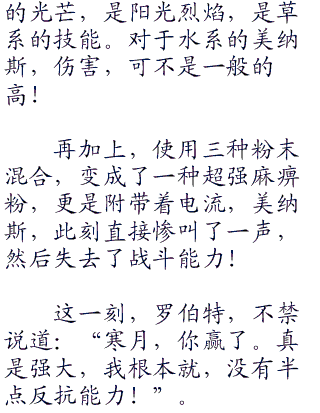 的光芒，是阳光烈焰，是草
系的技能。对于水系的美纳
斯，伤害，可不是一般的
高！
再加上，使用三种粉末
混合，变成了一种超强麻痹
粉，更是附带着电流，美纳
斯，此刻直接惨叫了一声，
然后失去了战斗能力！
这一刻，罗伯特，不禁
说道：“寒月，你赢了。真
是强大，我根本就，没有半
点反抗能力！”。